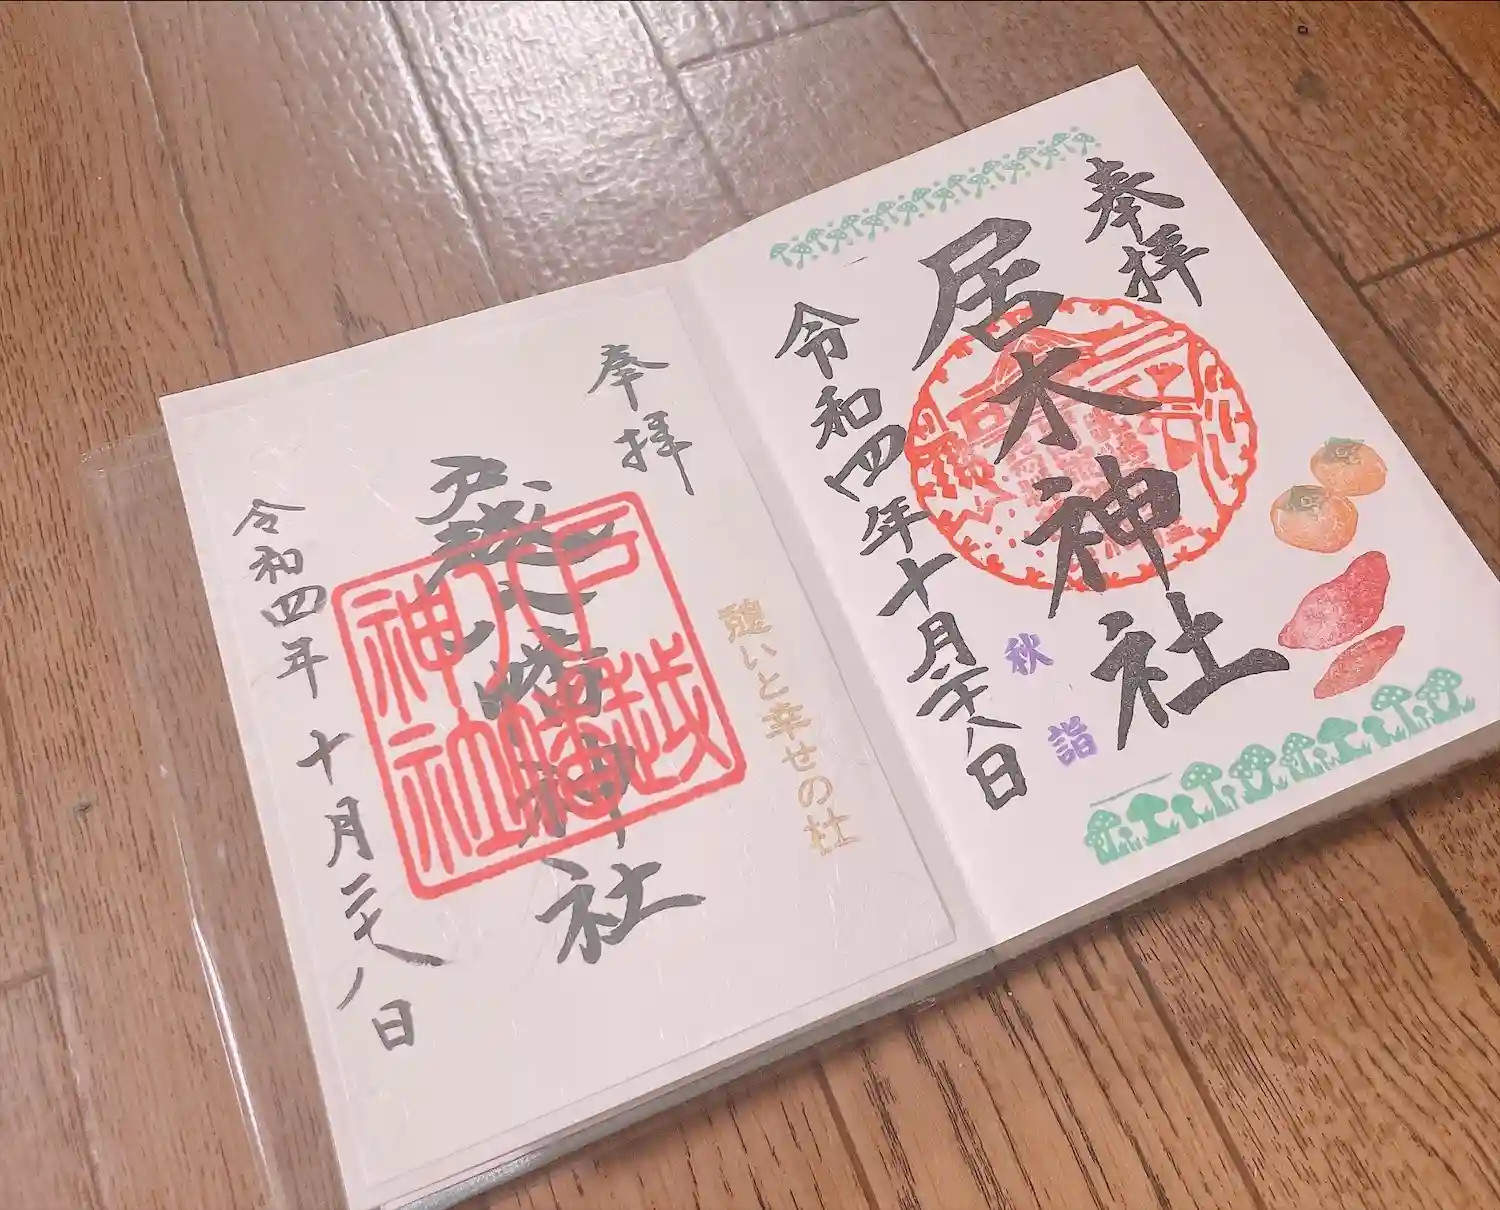 奉拝
居木神社
令和四年十月二十八日
秋詣
奉拝
戸越八幡神社
令和四年十月二十八日
戸越八幡神社
憩いと幸せの杜